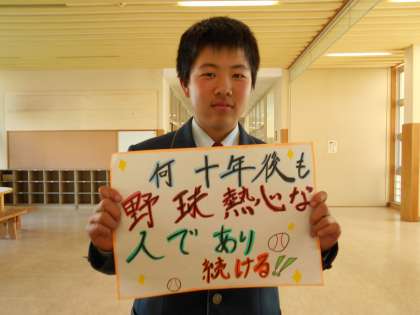 何十年後も
野球熱心な
人であり
続ける!!